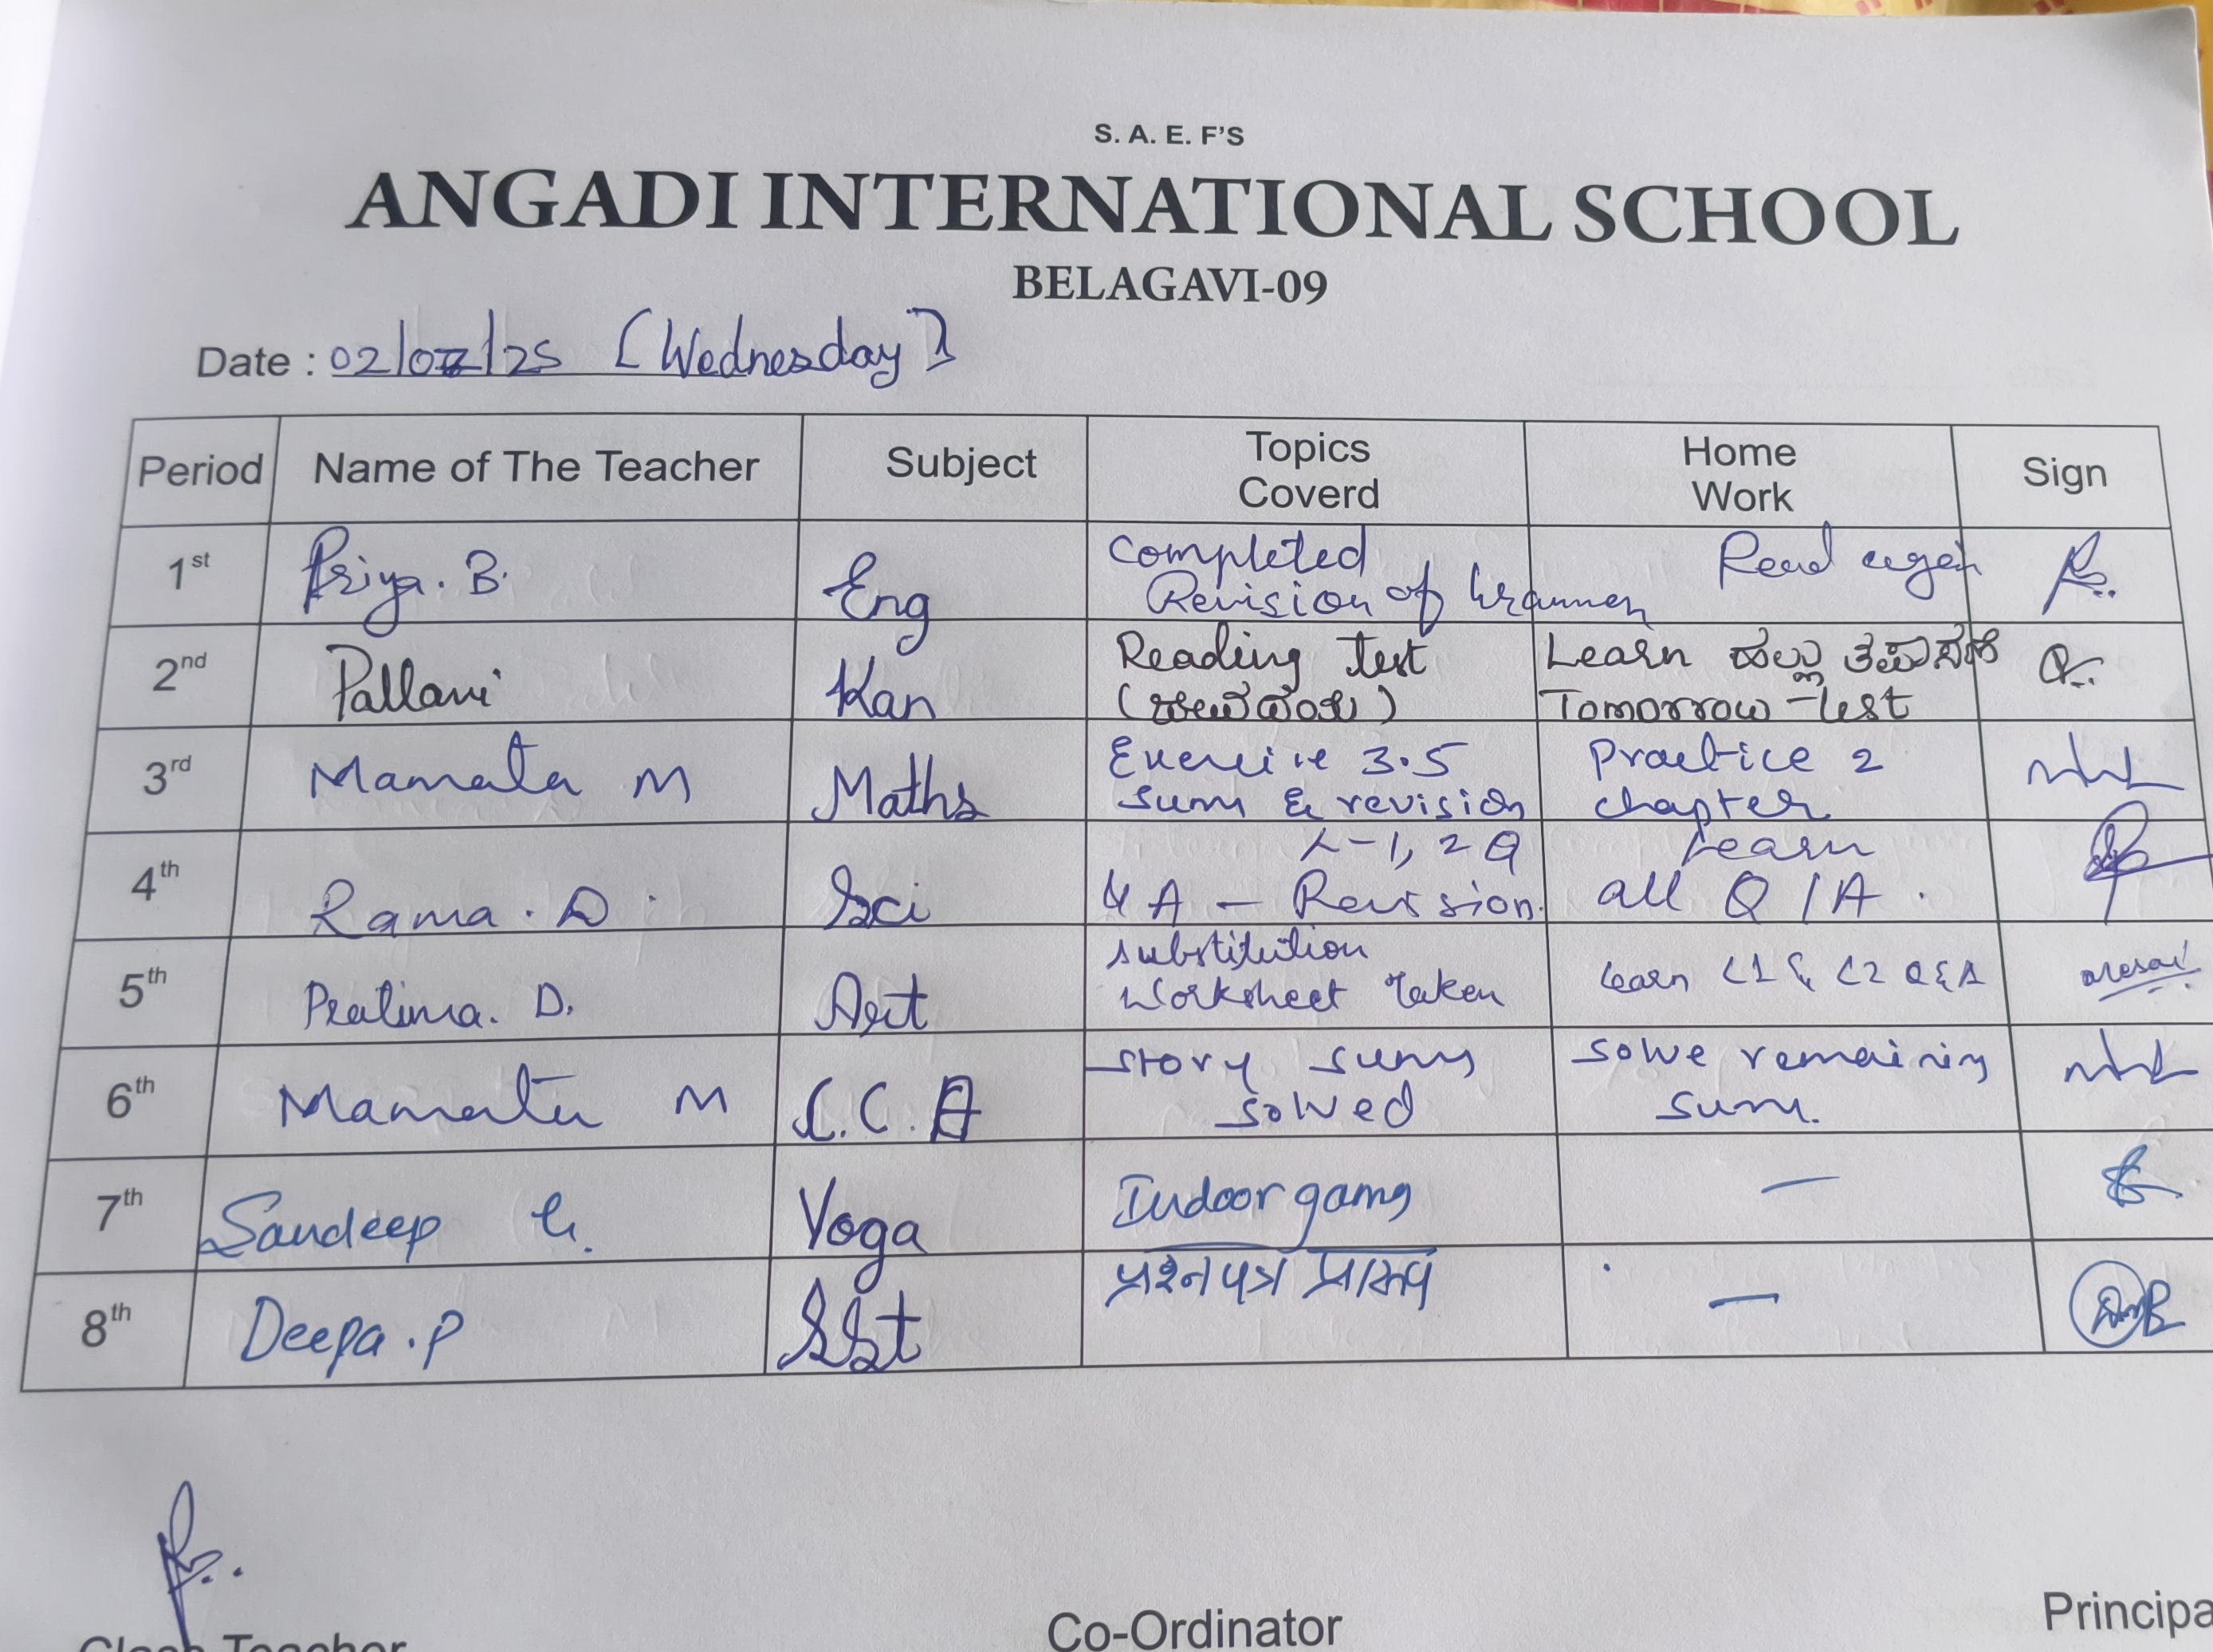 S. A. E. F'S
ANGADI INTERNATIONAL SCHOOL
BELAGAVI-09
Date : 02/07/25 [Wednesday]
Period Name of The Teacher Subject Topics Coverd Home Work Sign
1st Priya. B. Eng Completed Revision of Grammar Read again
2nd Pallavi Kan Reading Test Learn ಹಲ್ಲು ತಪಾಸಣೆ Tomorrow-test
3rd Mamata M Maths Exercise 3.5 sum & revision Practice 2 chapter
4th Rama. D. Sci L-1, 2 Q & A - Revision. Learn all Q/A.
5th Pratima. D. Art substitution Worksheet taken Learn L1 & L2 Q & A
6th Mamata M C.C.A story sums solved solve remaining sum.
7th Sandeep G. Yoga Indoor games —
8th Deepa.P SSt प्रश्नपत्र प्रारूप —
Class Teacher Co-Ordinator Principa